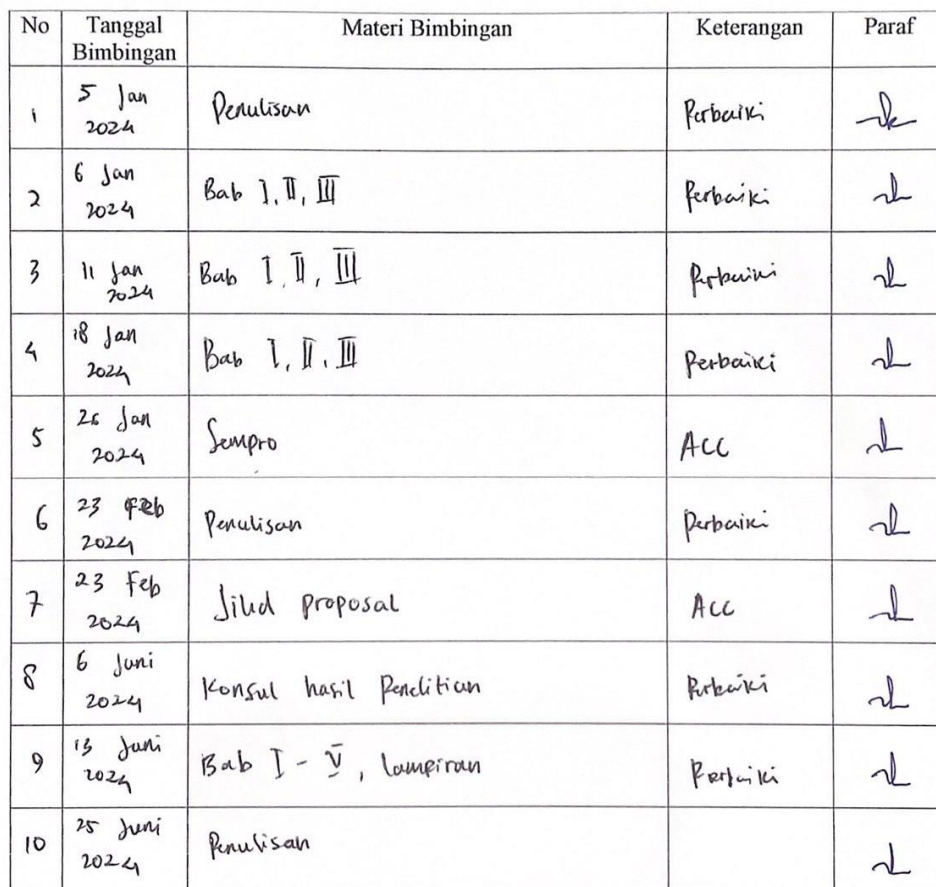 No Tanggal Bimbingan Materi Bimbingan Keterangan Paraf
1 5 Jan 2024 Penulisan Perbaiki
2 6 Jan 2024 Bab I, II, III Perbaiki
3 11 Jan 2024 Bab I, II, III Perbaiki
4 18 Jan 2024 Bab I, II, III Perbaiki
5 26 Jan 2024 Sempro ACC
6 23 Feb 2024 Penulisan Perbaiki
7 23 Feb 2024 Jilid proposal ACC
8 6 Juni 2024 Konsul hasil Penelitian Perbaiki
9 13 Juni 2024 Bab I - V, lampiran Perbaiki
10 25 Juni 2024 Penulisan